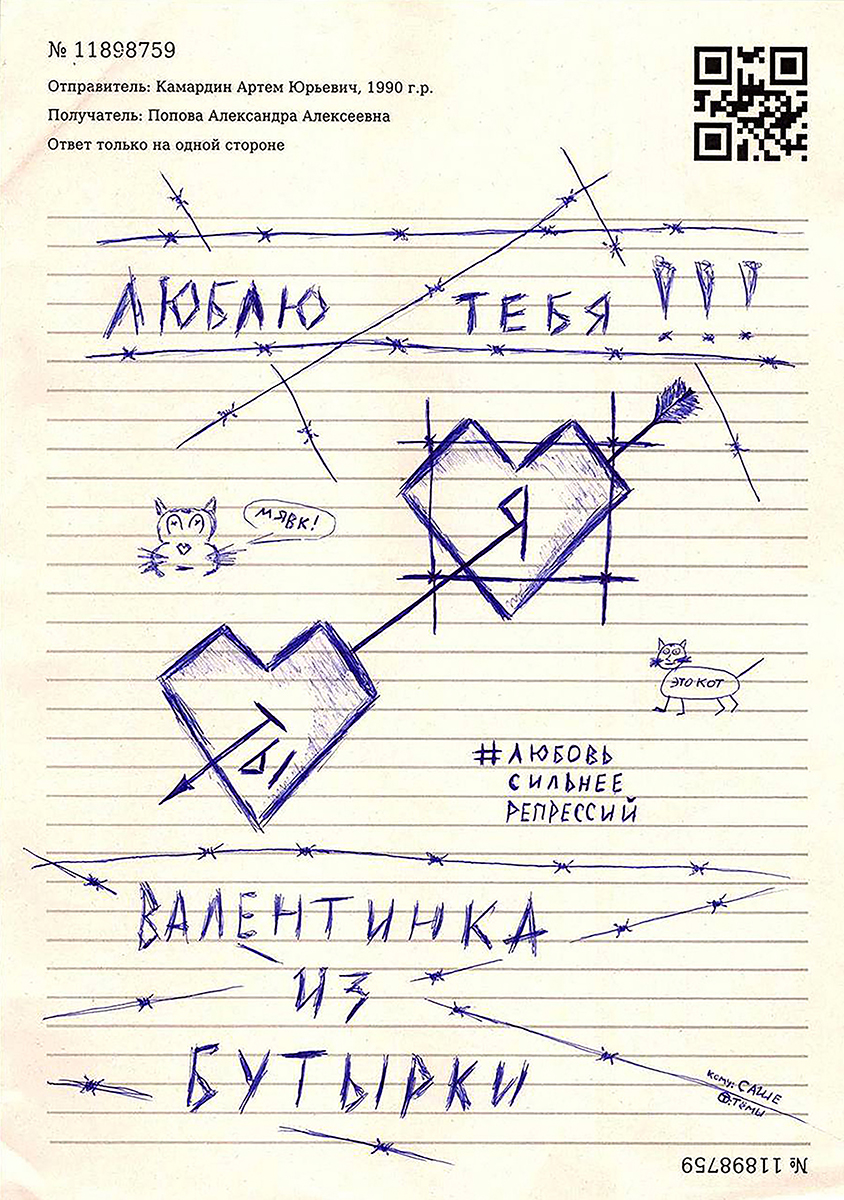 № 11898759
Отправитель: Камардин Артем Юрьевич, 1990 г.р.
Получатель: Попова Александра Алексеевна
Ответ только на одной стороне
ЛЮБЛЮ ТЕБЯ !!!
МЯВК!
Я
ЭТО КОТ
ТЫ
#ЛЮБОВЬ
СИЛЬНЕЕ
РЕПРЕССИЙ
ВАЛЕНТИНКА
ИЗ
БУТЫРКИ
кому: САШЕ
ОТ: ТЁМЫ
№ 11898759